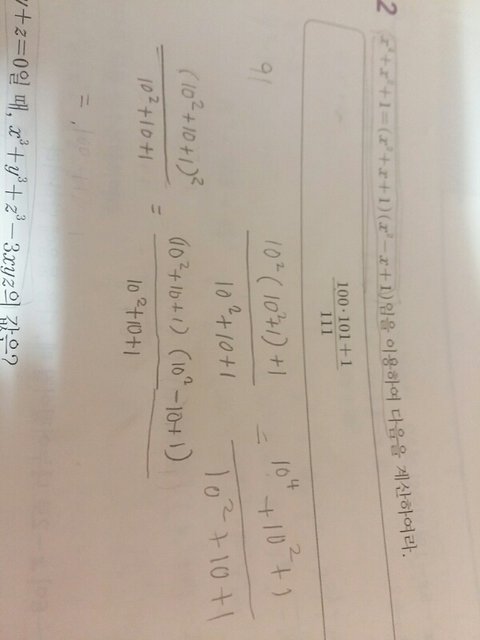 2 x⁴+x²+1=(x²+x+1)(x²−x+1)임을 이용하여 다음을 계산하여라.
100·101+1
111
91
10²(10²+1)+1 = 10⁴+10²+1
10²+10+1 10²+10+1
(10²+10+1)² = (10²+10+1)(10²−10+1)
10²+10+1 10²+10+1
=
y+z=0일 때, x³+y³+z³−3xyz의 값은?